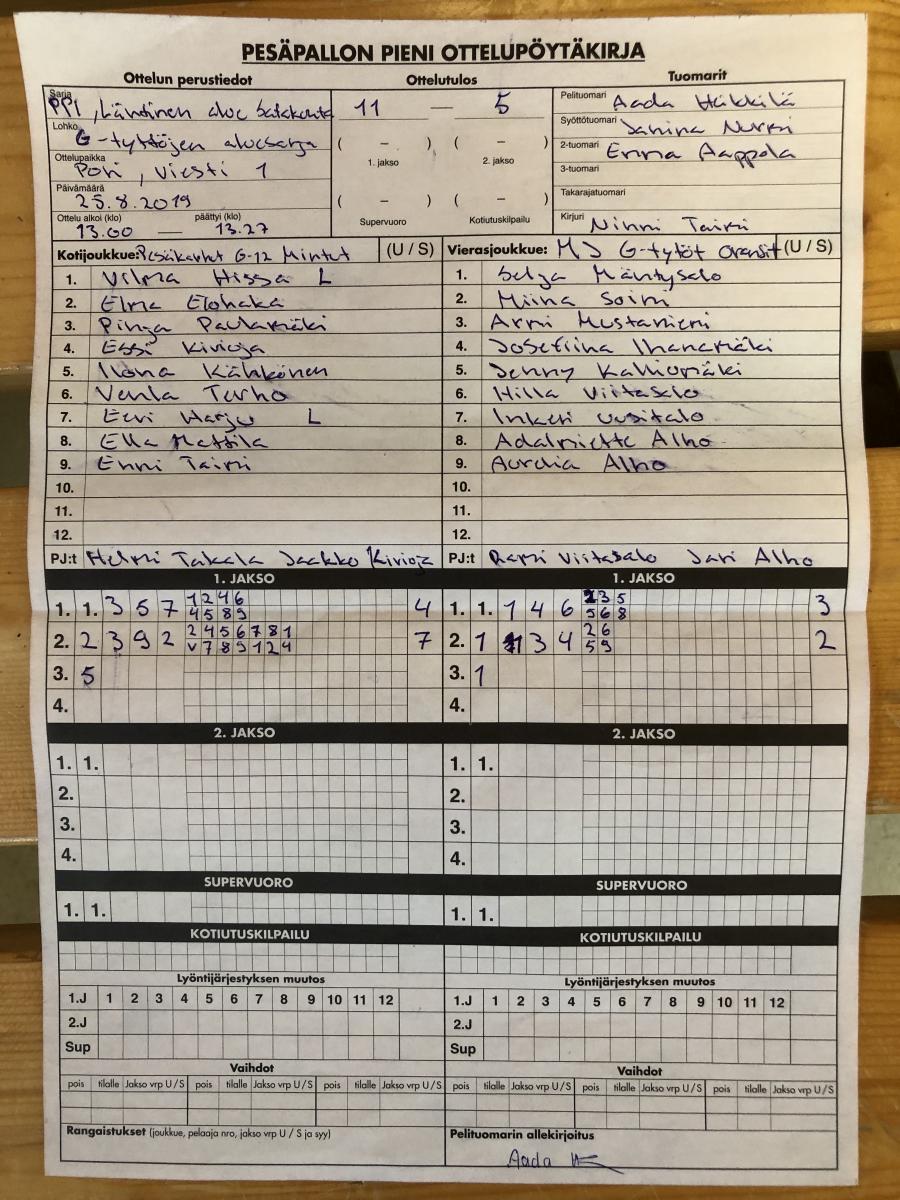 PESÄPALLON PIENI OTTELUPÖYTÄKIRJA
Ottelun perustiedot
Sarja
PPI, Läntinen alue Satakunta
Lohko
G-tyttöjen aluesarja
Ottelupaikka
Pori, Viesti 1
Päivämäärä
25.8.2019
Ottelu alkoi (klo) päättyi (klo)
13.00 — 13.27
Ottelutulos
11 — 5
( – ) ( – )
1. jakso 2. jakso
( – ) ( – )
Supervuoro Kotiutuskilpailu
Tuomarit
Pelituomari Aada Häkkilä
Syöttötuomari Janina Nurmi
2-tuomari Emma Aappola
3-tuomari
Takarajatuomari
Kirjuri Ninni Taimi
Kotijoukkue: Pesäkarhut G-12 Mintut (U / S)
1. Vilma Hissa L
2. Elma Elohaka
3. Pinja Paulamäki
4. Essi Kivioja
5. Ilona Kähkönen
6. Venla Turho
7. Eevi Harju L
8. Ella Mattila
9. Enni Taimi
10.
11.
12.
PJ:t Helmi Takala Jaakko Kivioja
Vierasjoukkue: MJ G-tytöt Oranssit (U / S)
1. Selja Mäntysalo
2. Miina Soini
3. Armi Mustaniemi
4. Josefiina Ihanamäki
5. Jenny Kalliomäki
6. Hilla Viitasalo
7. Inkeri Uusitalo
8. Adalmiette Alho
9. Aurelia Alho
10.
11.
12.
PJ:t Rami Viitasalo Jari Alho
1. JAKSO
1. 1. 3 5 7 1 2 4 6 4
4 5 8 9
2. 2 3 9 2 2 4 5 6 7 8 1 7
v 7 8 9 1 2 4
3. 5
4.
1. JAKSO
1. 1. 1 4 6 1 3 5 3
5 6 8
2. 1 3 4 2 6 2
5 9
3. 1
4.
2. JAKSO
1. 1.
2.
3.
4.
2. JAKSO
1. 1.
2.
3.
4.
SUPERVUORO
1. 1.
SUPERVUORO
1. 1.
KOTIUTUSKILPAILU
KOTIUTUSKILPAILU
Lyöntijärjestyksen muutos
1.J 1 2 3 4 5 6 7 8 9 10 11 12
2.J
Sup
Lyöntijärjestyksen muutos
1.J 1 2 3 4 5 6 7 8 9 10 11 12
2.J
Sup
Vaihdot
pois tilalle Jakso vrp U / S pois tilalle Jakso vrp U / S pois tilalle Jakso vrp U / S
Vaihdot
pois tilalle Jakso vrp U / S pois tilalle Jakso vrp U / S pois tilalle Jakso vrp U / S
Rangaistukset (joukkue, pelaaja nro, jakso vrp U / S ja syy)
Pelituomarin allekirjoitus
Aada